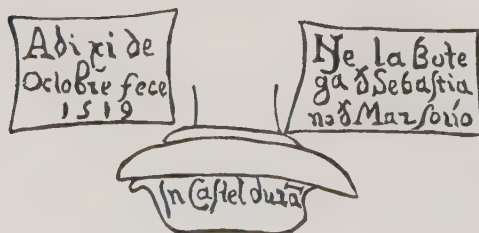 Adi xi de
Octobrē fece
1519
Ne la Bute
ga ꝺ Sebastia
no ꝺ Marforio
In Castel durā